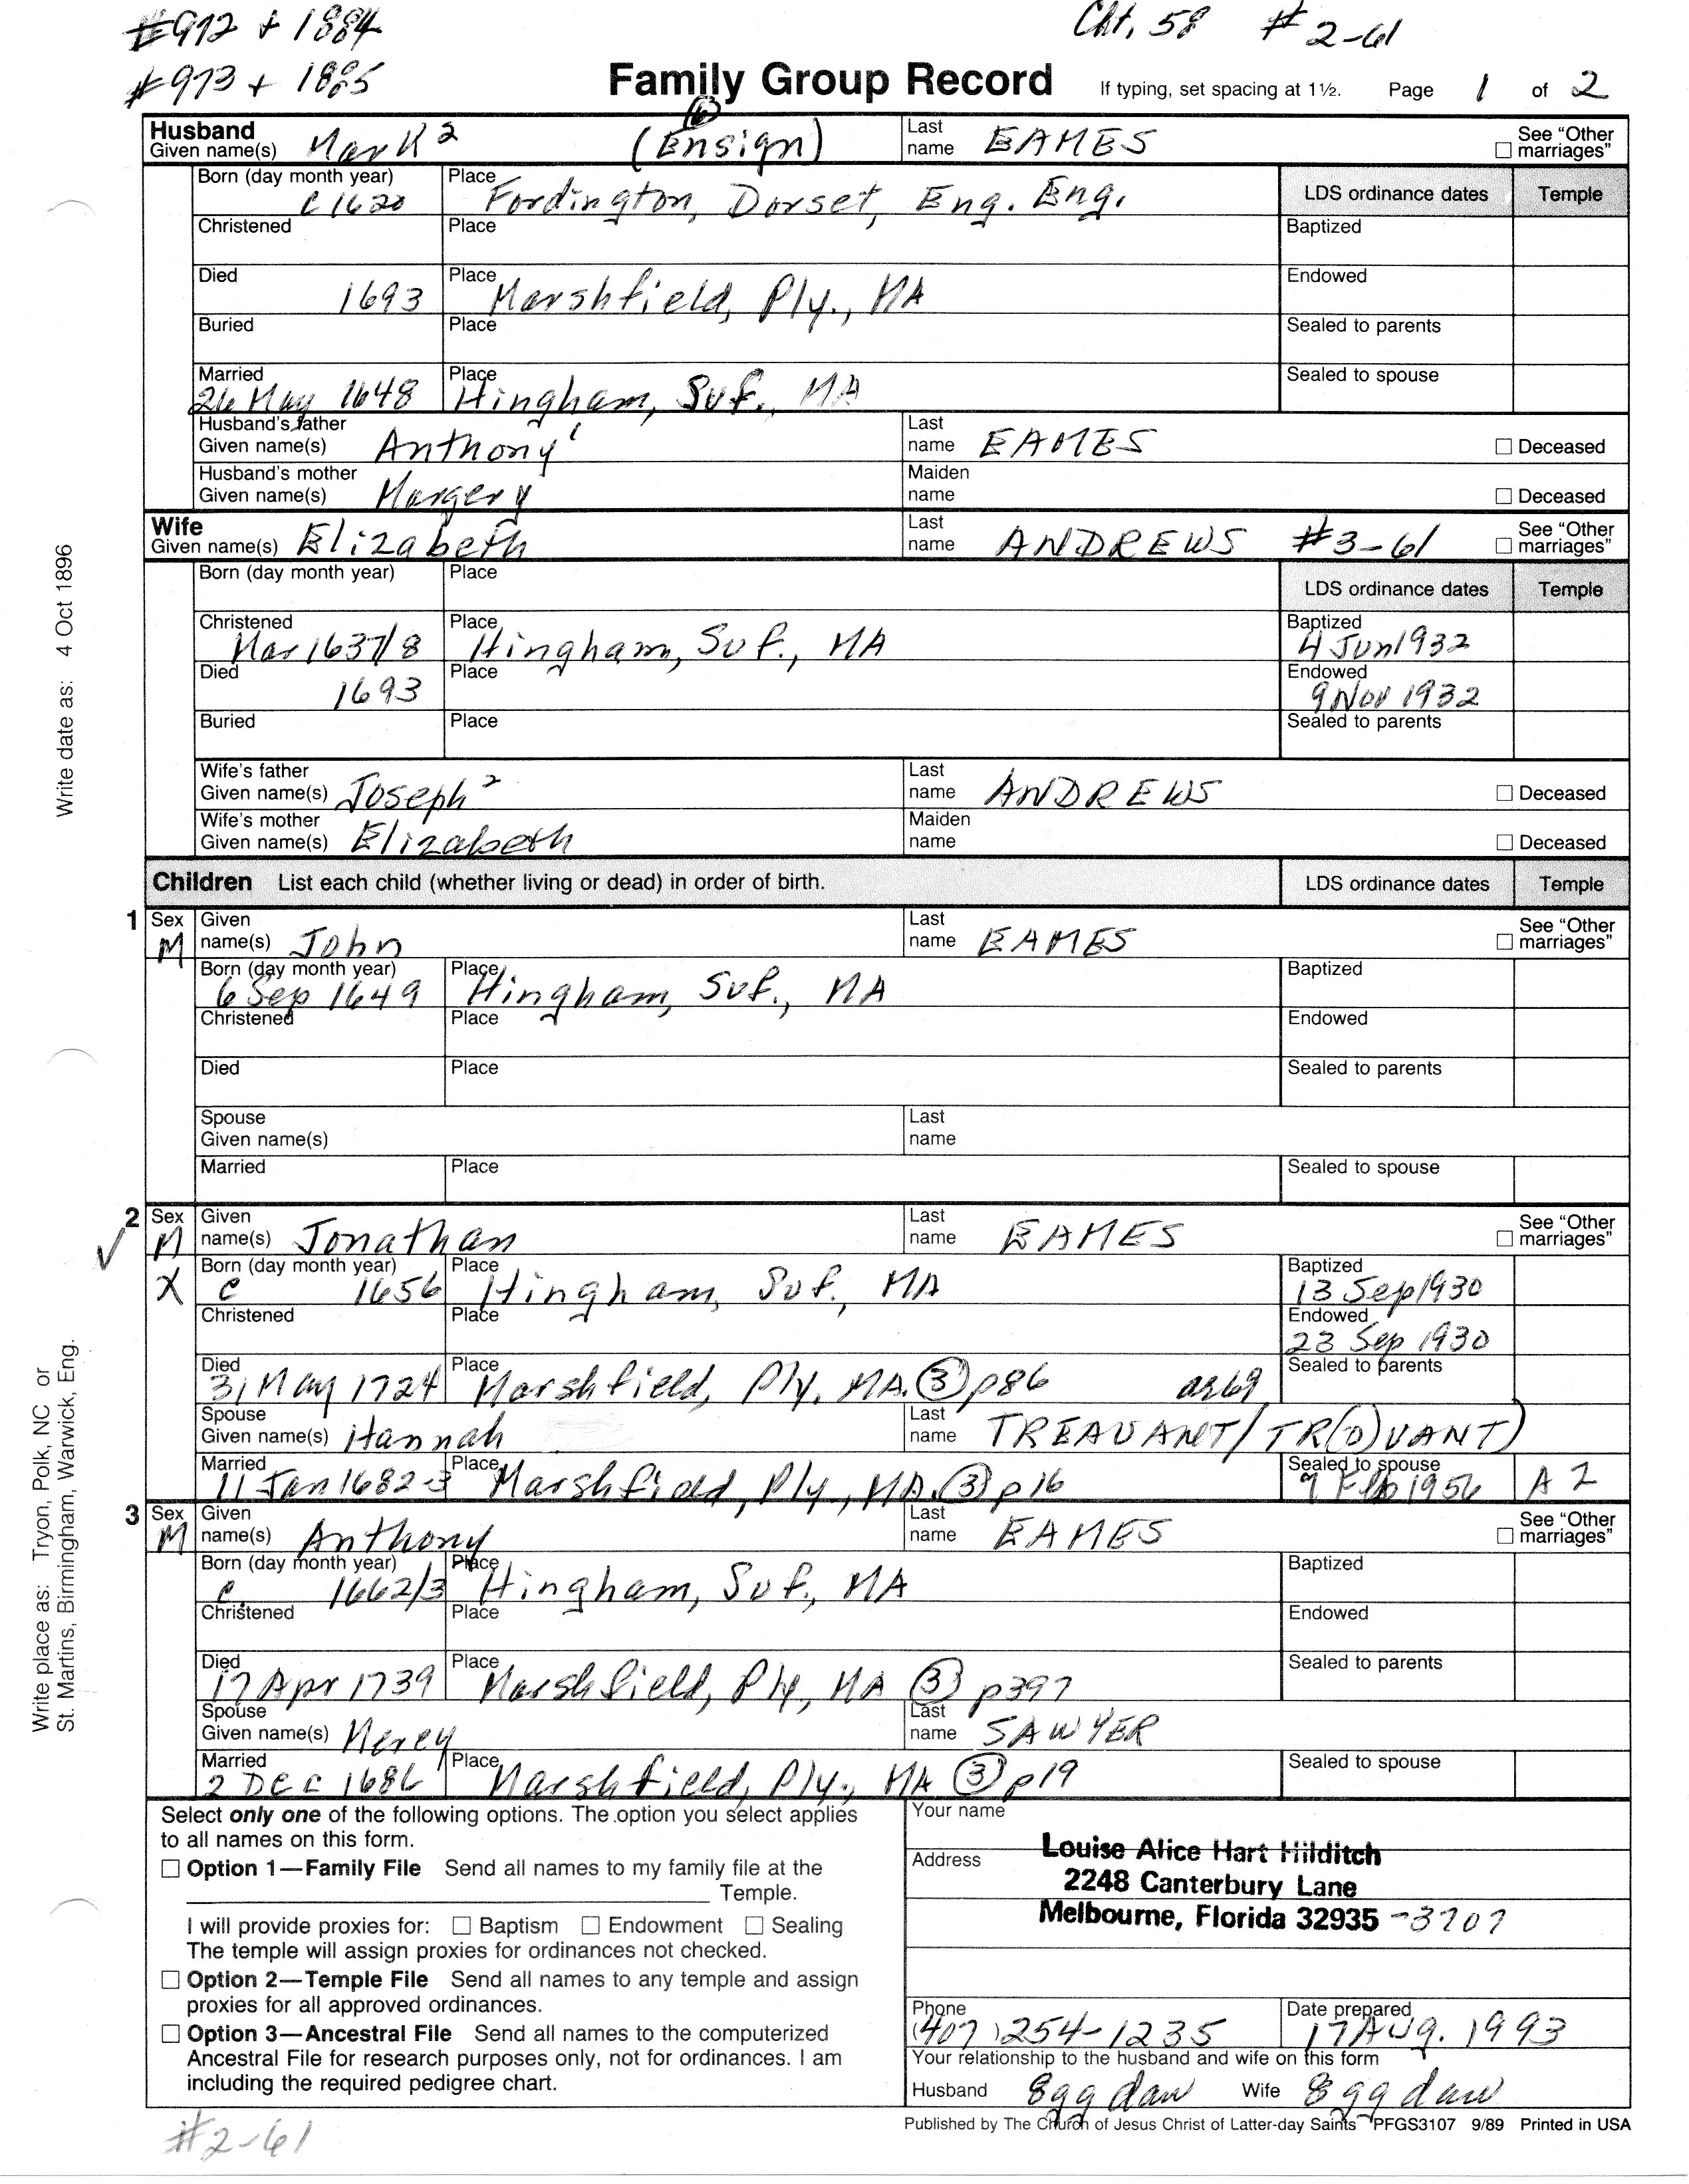 #912 + 1884
Cht. 58 # 2-61
#913 + 1885
Family Group Record If typing, set spacing at 1½. Page 1 of 2
Husband
Given name(s) Mark² (Ensign) ⑥ Last name EAMES ☐ See “Other marriages”
Born (day month year) c 1620 Place Fordington, Dorset, Eng. Eng. LDS ordinance dates Temple
Christened Place Baptized
Died 1693 Place Marshfield, Ply., MA Endowed
Buried Place Sealed to parents
Married 26 May 1648 Place Hingham, Suf., MA Sealed to spouse
Husband's father
Given name(s) Anthony¹ Last name EAMES ☐ Deceased
Husband's mother
Given name(s) Margery Maiden name ☐ Deceased
Wife
Given name(s) Elizabeth Last name ANDREWS #3-61 ☐ See “Other marriages”
Born (day month year) Place LDS ordinance dates Temple
Christened Mar 1637/8 Place Hingham, Suf., MA Baptized 4 Jun 1932
Died 1693 Place Endowed 9 Nov 1932
Buried Place Sealed to parents
Wife's father
Given name(s) Joseph² Last name ANDREWS ☐ Deceased
Wife's mother
Given name(s) Elizabeth Maiden name ☐ Deceased
Children List each child (whether living or dead) in order of birth. LDS ordinance dates Temple
1 Sex M Given name(s) John Last name EAMES ☐ See “Other marriages”
Born (day month year) 6 Sep 1649 Place Hingham, Suf., MA Baptized
Christened Place Endowed
Died Place Sealed to parents
Spouse
Given name(s) Last name
Married Place Sealed to spouse
2 ✓ Sex M Given name(s) Jonathan Last name EAMES ☐ See “Other marriages”
X Born (day month year) c 1656 Place Hingham, Suf., MA Baptized 13 Sep 1930
Christened Place Endowed 23 Sep 1930
Died 31 May 1724 Place Marshfield, Ply., MA. ③ p86 ae 69 Sealed to parents
Spouse
Given name(s) Hannah Last name TREAUANT/TR(O)VANT)
Married 11 Jan 1682-3 Place Marshfield, Ply., MA. ③ p16 Sealed to spouse 9 Feb 1956 A 2
3 Sex M Given name(s) Anthony Last name EAMES ☐ See “Other marriages”
Born (day month year) c. 1662/3 Place Hingham, Suf., MA Baptized
Christened Place Endowed
Died 17 Apr 1739 Place Marshfield, Ply., MA ③ p397 Sealed to parents
Spouse
Given name(s) Mercy Last name SAWYER
Married 2 DEC 1686 Place Marshfield, Ply., MA ③ p19 Sealed to spouse
Write date as: 4 Oct 1896
Write place as: Tryon, Polk, NC or
St. Martins, Birmingham, Warwick, Eng.
Select only one of the following options. The option you select applies
to all names on this form.
☐ Option 1—Family File Send all names to my family file at the
Temple.
I will provide proxies for: ☐ Baptism ☐ Endowment ☐ Sealing
The temple will assign proxies for ordinances not checked.
☐ Option 2—Temple File Send all names to any temple and assign
proxies for all approved ordinances.
☐ Option 3—Ancestral File Send all names to the computerized
Ancestral File for research purposes only, not for ordinances. I am
including the required pedigree chart.
Your name
Louise Alice Hart Hilditch
Address
2248 Canterbury Lane
Melbourne, Florida 32935 -3707
Phone (407) 254-1235 Date prepared 17 Aug. 1993
Your relationship to the husband and wife on this form
Husband 8gg dau Wife 8gg dau
Published by The Church of Jesus Christ of Latter-day Saints PFGS3107 9/89 Printed in USA
#2-61